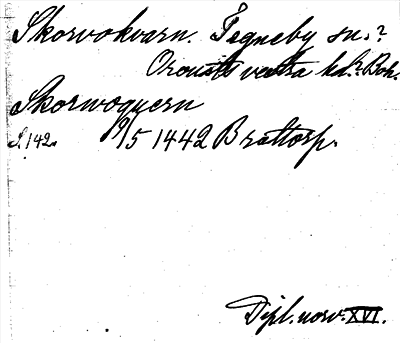 Skorvokvarn. Tegneby sn.?
Orousts västra hd. Boh.
Skorwoquern
S. 142. 9/5 1442 Brattorp.
Dipl. norv. XVI.